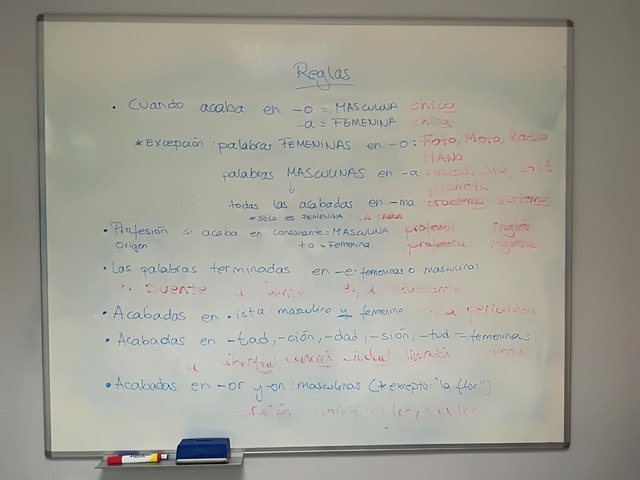 Reglas
• Cuando acaba en -o = MASCULINA chico
-a = FEMENINA chica
*Excepción: palabras FEMENINAS en -o: Foto, Moto, Radio
MANO
palabras MASCULINAS en -a: mapa, día, sofá
planeta
↓
todas las acabadas en -ma problema, sistema
*SOLO ES FEMENINA: LA CAMA
• Profesión si acaba en consonante = MASCULINA profesor inglés
origen +a = Femenina profesora inglesa
• Las palabras terminadas en -e: femeninas o masculinas
el estudiante
• Acabadas en -ista: masculino y femenino la periodista
• Acabadas en -tad, -ción, -dad, -sión, -tud = femeninas
libertad canción ciudad
• Acabadas en -or y -on: masculinas (*excepto: "la flor")